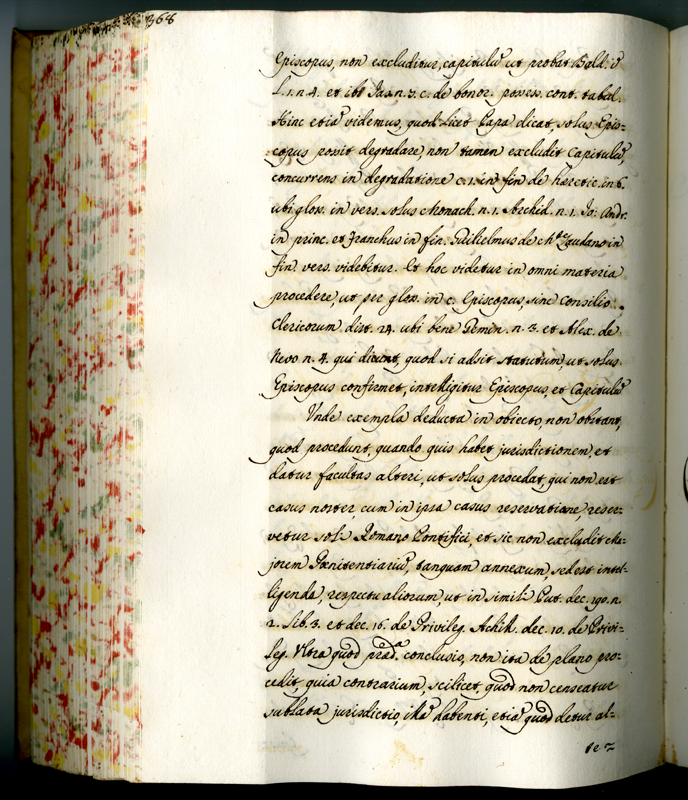 368
Episcopus, non excluditur, capitulũ ut probat Bald. ĩ
L. 1. n. 4. et ibi Jas. n. 3. c. de bonor. possess. cont. tabul.
Hinc etiã videmus, quod licet Papa dicat, solus Epis=
copus possit degradare, non tamen excludit Capitulũ,
concurrens in degradatione c. 1. in fin de haeretic. in 6.
ubi glos. in vers. solus Monach. n. 1. Archid. n. 1. Jo: Andr.
in princ. et Franchus in fin. Guilielmus de Laudano in
fin vers. videbitur. Et hoc videtur in omni materia
procedere, ut per glos. in c. Episcopus, sine Consilio
Clericorum, dist. 24. ubi bene Gemin. n. 3. et Alex. de
Nevo n. 4. qui dicunt, quod si adsit statutum, ut solus
Episcopus confirmet, intelligitur Episcopus, et Capitulũ
Vnde exempla deducta in obiecto, non obstant,
quod procedunt, quando quis habet jurisdictionem, et
datur facultas alteri, ut solus procedat, qui non est
casus noster, cum in ipsa casus reservatione, reser=
vetur soli Romano Pontifici, et sic non excludit Ma=
jorem Poenitentiariũ, tanquam annexum, sed est intel=
ligenda, respectu aliorum, ut in simili Put. dec. 190. n.
2. lib. 3. et dec. 16. de Privileg. Achil. dec. 10. de Privi=
leg. Vltra quod prad.ª conclusio, non ita de plano pro=
cedit, quia contrarium, scilicet, quod non censeatur
sublata jurisdictio, illã habenti, etiã quod detur al=